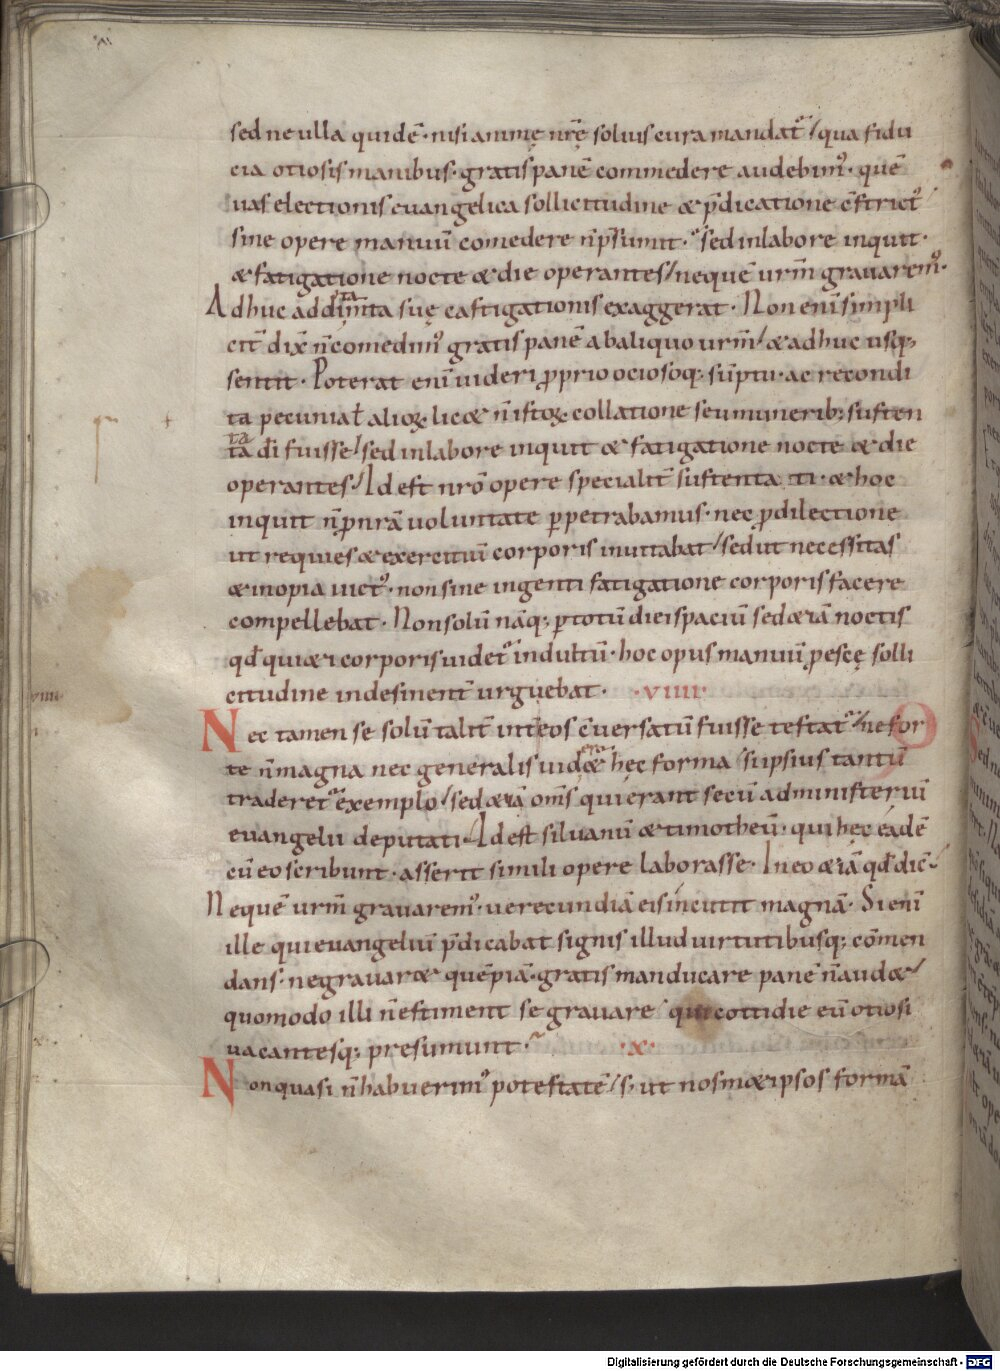 sed ne ulla quidē · nisi animę nr̄ę soluis cura mandat᷑ / qua fidu
cia otiosis manibus · gratis panē commedere audebim᷒ · quē
uas electionis euangelica sollicitudine & p̄dicatione c̄strict᷒
sine opere manuū comedere n̄ p̄sumit · Sed in labore inquit ·
& fatigatione nocte & die operantes / ne quē urm̄ grauarem᷒ ·
Adhuc addimta suę castigationis exaggerat · Non enī simpli
cit̄ dix̄ n̄ comedim᷒ gratis panē ab aliquo urm̄ / & adhuc usq;
sentit · Poterat enī uideri ꝓprio ociosoq; sūptu · ac recondi
ta pecunia ł alioꝝ lic& n̄ istoꝝ collatione seu munerib; susten
ta di fuisse / sed in labore inquit & fatigatione nocte & die
operantes / Id est nrō opere specialit̄ sustentati · & hoc
inquit n̄ ꝓ nrā uoluntate ꝑpetrabamus · nec ꝓ dilectione
ut requies & exercitiū corporis inuitabat / sed ut necessitas
& inopia uict᷒ · non sine ingenti fatigatione corporis facere
compellebat · Non solū nāq; ꝑ totū diei spaciū sed &iā noctis
qd̄ qui&i corporis uidet᷑ indultū · hoc opus manuū ꝓ escę solli
citudine indesinent̄ urguebat · · VIIII ·
VIIII
Nec tamen se solū talit̄ int̄ eos c̄uersatū fuisse testat᷑ / ne for
te n̄ magna nec generalis uid&er& hęc forma / si ipsius tantū
traderet᷑ exemplo / sed &iā om̄s qui erant secū administeriū
euangelii deputati · Id est siluanū & timotheū · qui hęc eadē
cū eo scribunt · asserit simili opere laborasse · In eo &iā qd̄ dic̄ ·
Ne quē urm̄ grauarem᷒ · uerecundiā eis incutit magnā · Si enī
ille qui euangeliū p̄dicabat signis illud uirtutibusq; cōmen
dans · ne grauar& quēpiā · gratis manducare panē n̄ aud& /
quomodo illi n̄ estiment se grauare / qui cottidie eū otiosi
uacantesq; presumunt · · X ·
Non quasi n̄ habuerim᷒ potestatē / s; ut nosm&ipsos formā
Digitalisierung gefördert durch die Deutsche Forschungsgemeinschaft - DFG